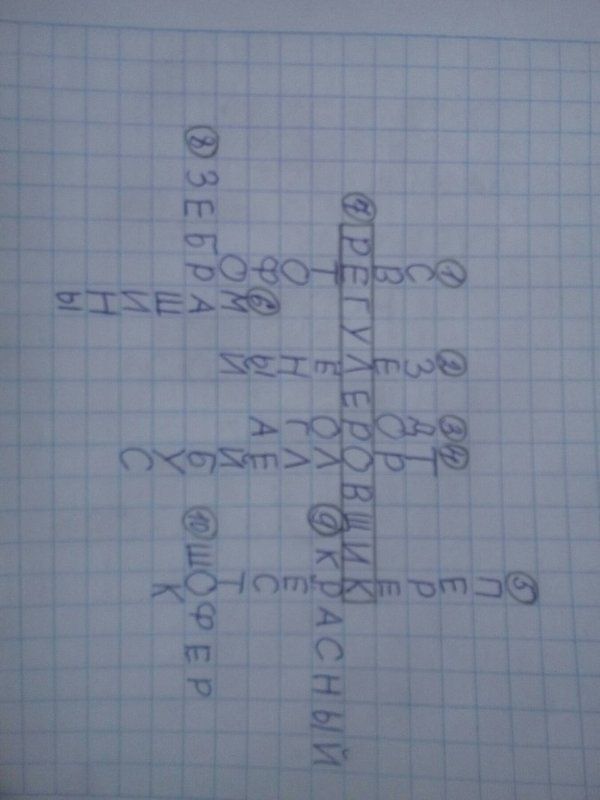 1 СВЕТОФОР
2 ЗЕЛЕНЫЙ
3 ДОРОГА
4 ТРОЛЛЕЙБУС
5 ПЕРЕКРЕСТОК
6 МАШИНЫ
7 РЕГУЛЕРОВЩИК
8 ЗЕБРА
9 КРАСНЫЙ
10 ШОФЕР